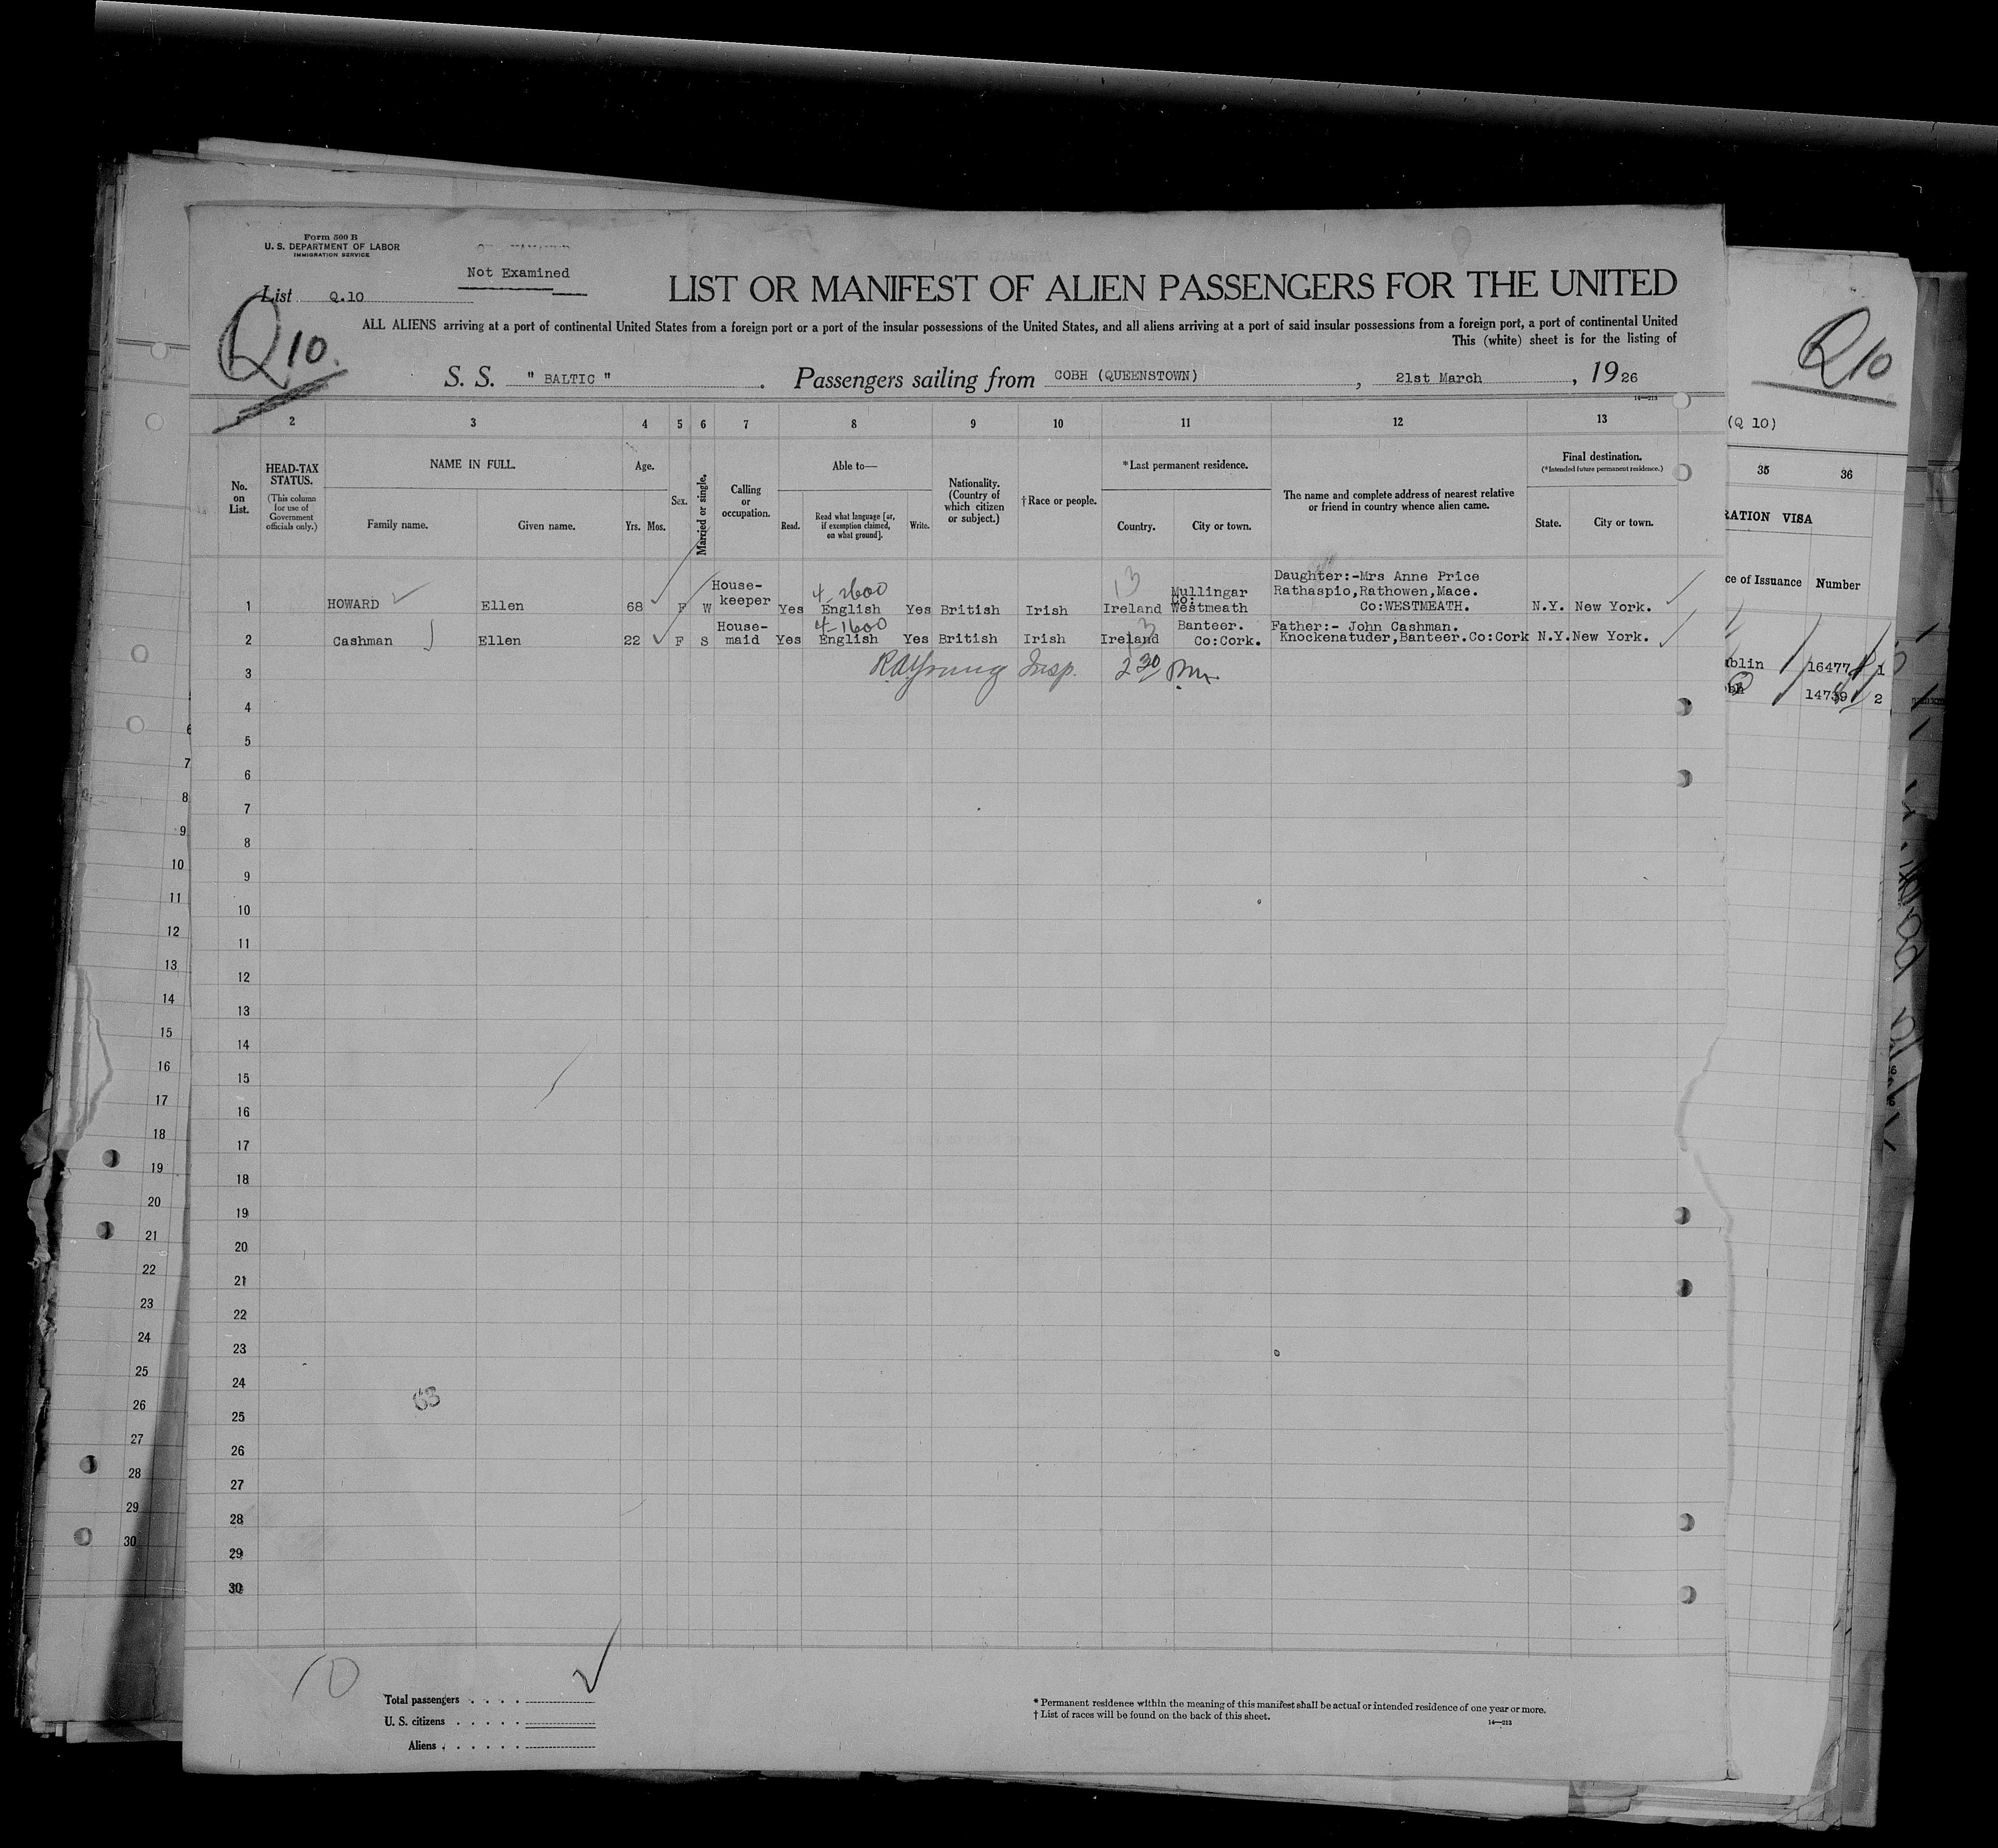 Form 500 B
U. S. DEPARTMENT OF LABOR
IMMIGRATION SERVICE
Not Examined
List Q.10
Q10.
LIST OR MANIFEST OF ALIEN PASSENGERS FOR THE UNITED
ALL ALIENS arriving at a port of continental United States from a foreign port or a port of the insular possessions of the United States, and all aliens arriving at a port of said insular possessions from a foreign port, a port of continental United
This (white) sheet is for the listing of
S. S. " BALTIC " . Passengers sailing from COBH (QUEENSTOWN) , 21st March , 1926
14—213
2 3 4 5 6 7 8 9 10 11 12 13
No. on List.
HEAD-TAX STATUS.
(This column for use of Government officials only.)
NAME IN FULL.
Family name. Given name.
Age.
Yrs. Mos.
Sex.
Married or single.
Calling or occupation.
Able to—
Read. Read what language [or, if exemption claimed, on what ground]. Write.
Nationality. (Country of which citizen or subject.)
†Race or people.
*Last permanent residence.
Country. City or town.
The name and complete address of nearest relative or friend in country whence alien came.
Final destination.
(*Intended future permanent residence.)
State. City or town.
1 HOWARD Ellen 68 F W House-keeper Yes 4-2600 English Yes British Irish 13 Ireland Mullingar Co: Westmeath Daughter:-Mrs Anne Price Rathaspio,Rathowen,Mace. Co:WESTMEATH. N.Y. New York.
2 Cashman Ellen 22 F S House-maid Yes 4-1600 English Yes British Irish Ireland 13 Banteer. Co:Cork. Father:- John Cashman. Knockenatuder,Banteer.Co:Cork N.Y. New York.
3 Insp. 2 30 Pm
4
5
6
7
8
9
10
11
12
13
14
15
16
17
18
19
20
21
22
23
24
25
26
27
28
29
30
63
10
Total passengers . . . .
U. S. citizens . . . . .
Aliens . . . . . .
* Permanent residence within the meaning of this manifest shall be actual or intended residence of one year or more.
† List of races will be found on the back of this sheet.
14—213
Q10
(Q 10)
35 36
RATION VISA
ce of Issuance Number
ublin 16477 1
obh 14739 2
6
7
8
9
10
11
12
13
14
15
16
17
18
19
20
21
22
23
24
25
26
27
28
29
30